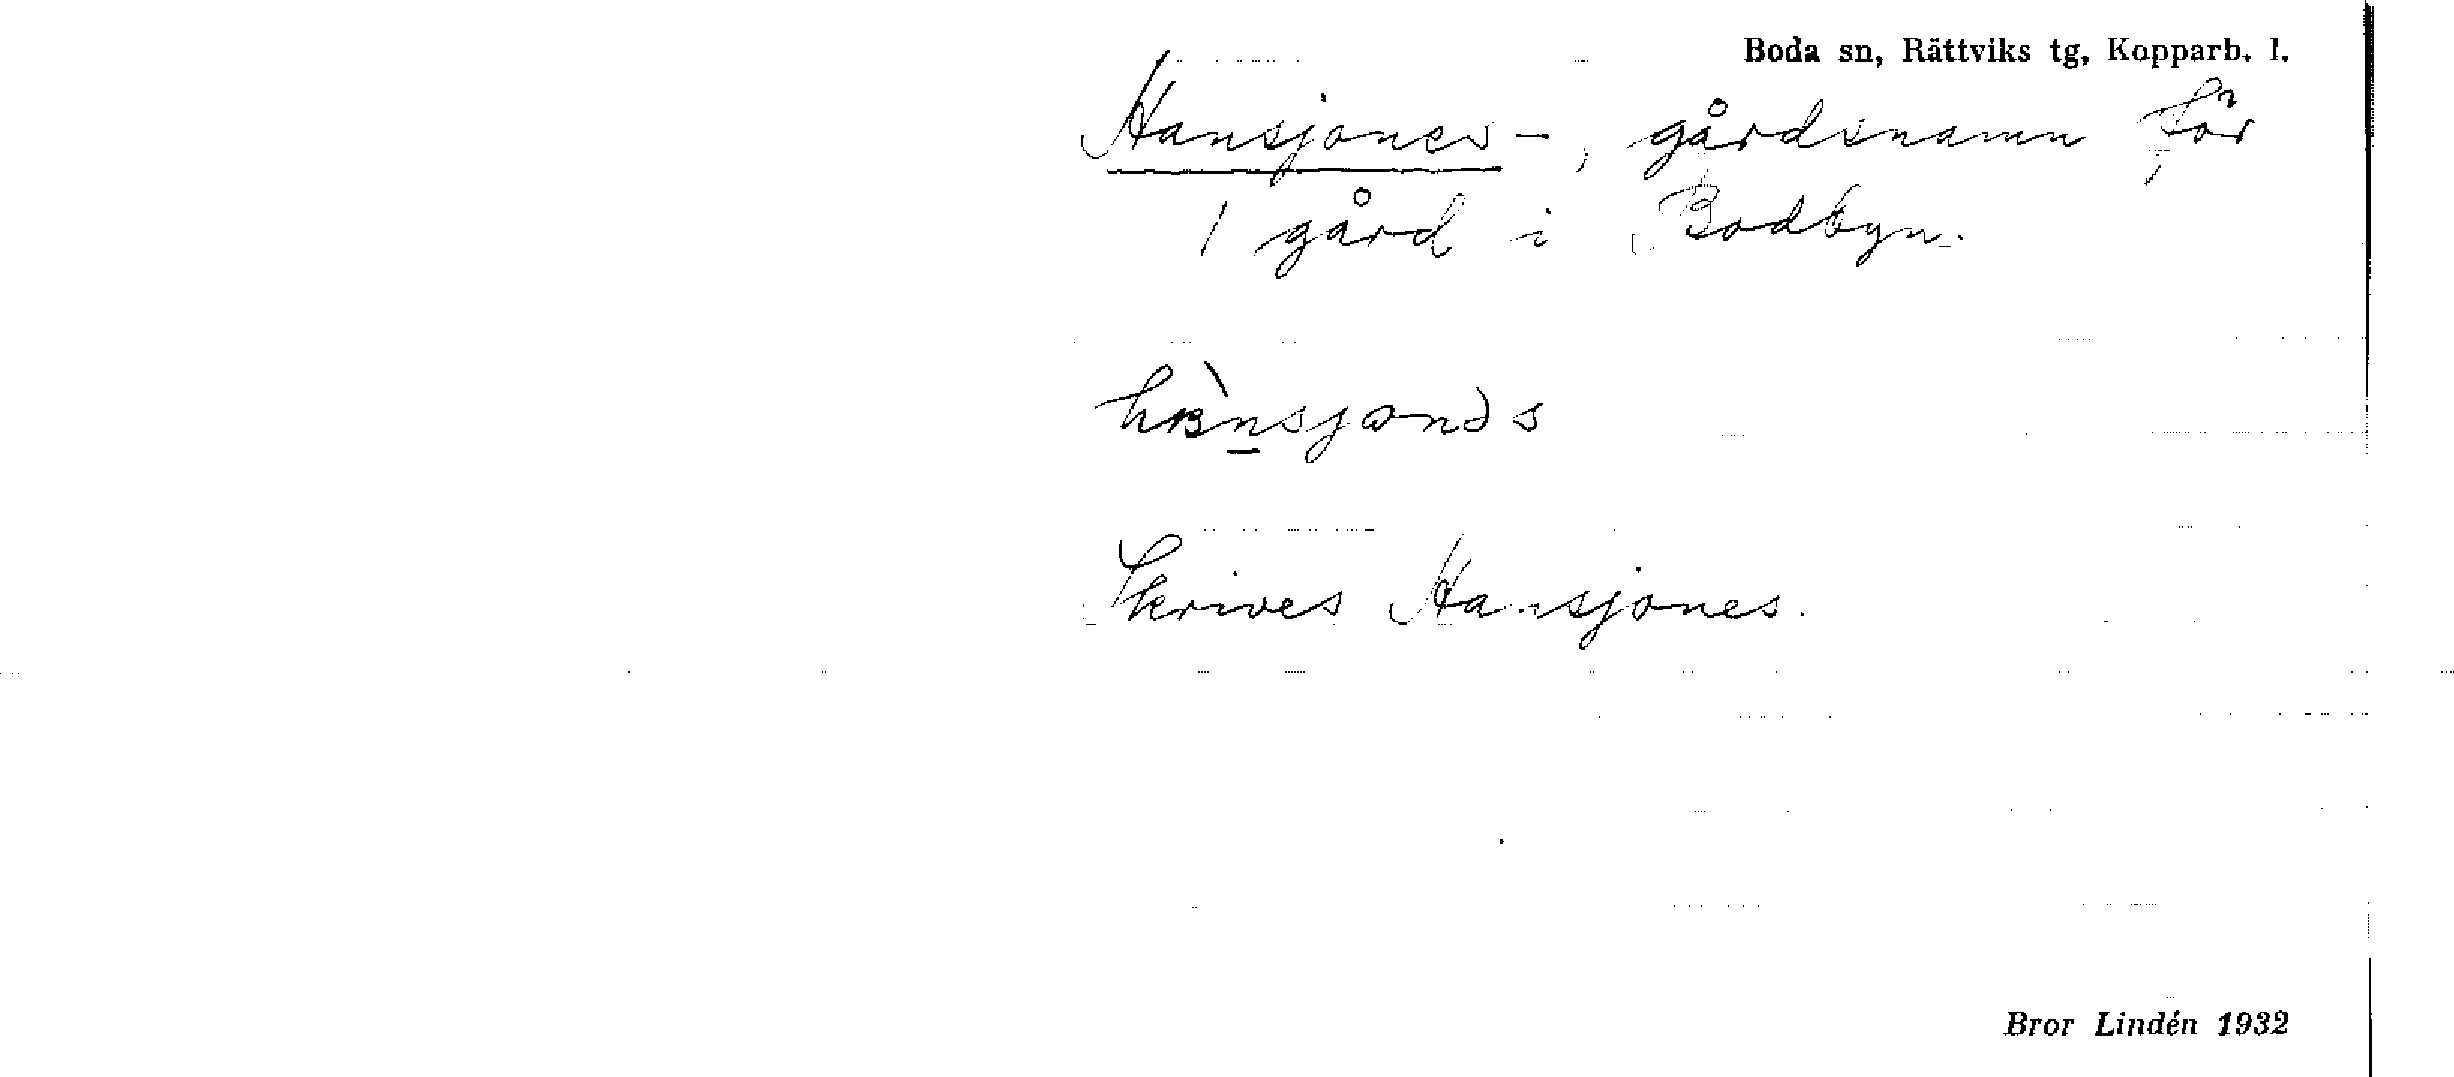 Boda sn, Rättviks tg, Kopparb. l.
Hansjones-, gårdsnamn för
1 gård i Bodbyn.
Skrives Hansjones.
Bror Lindén 1932